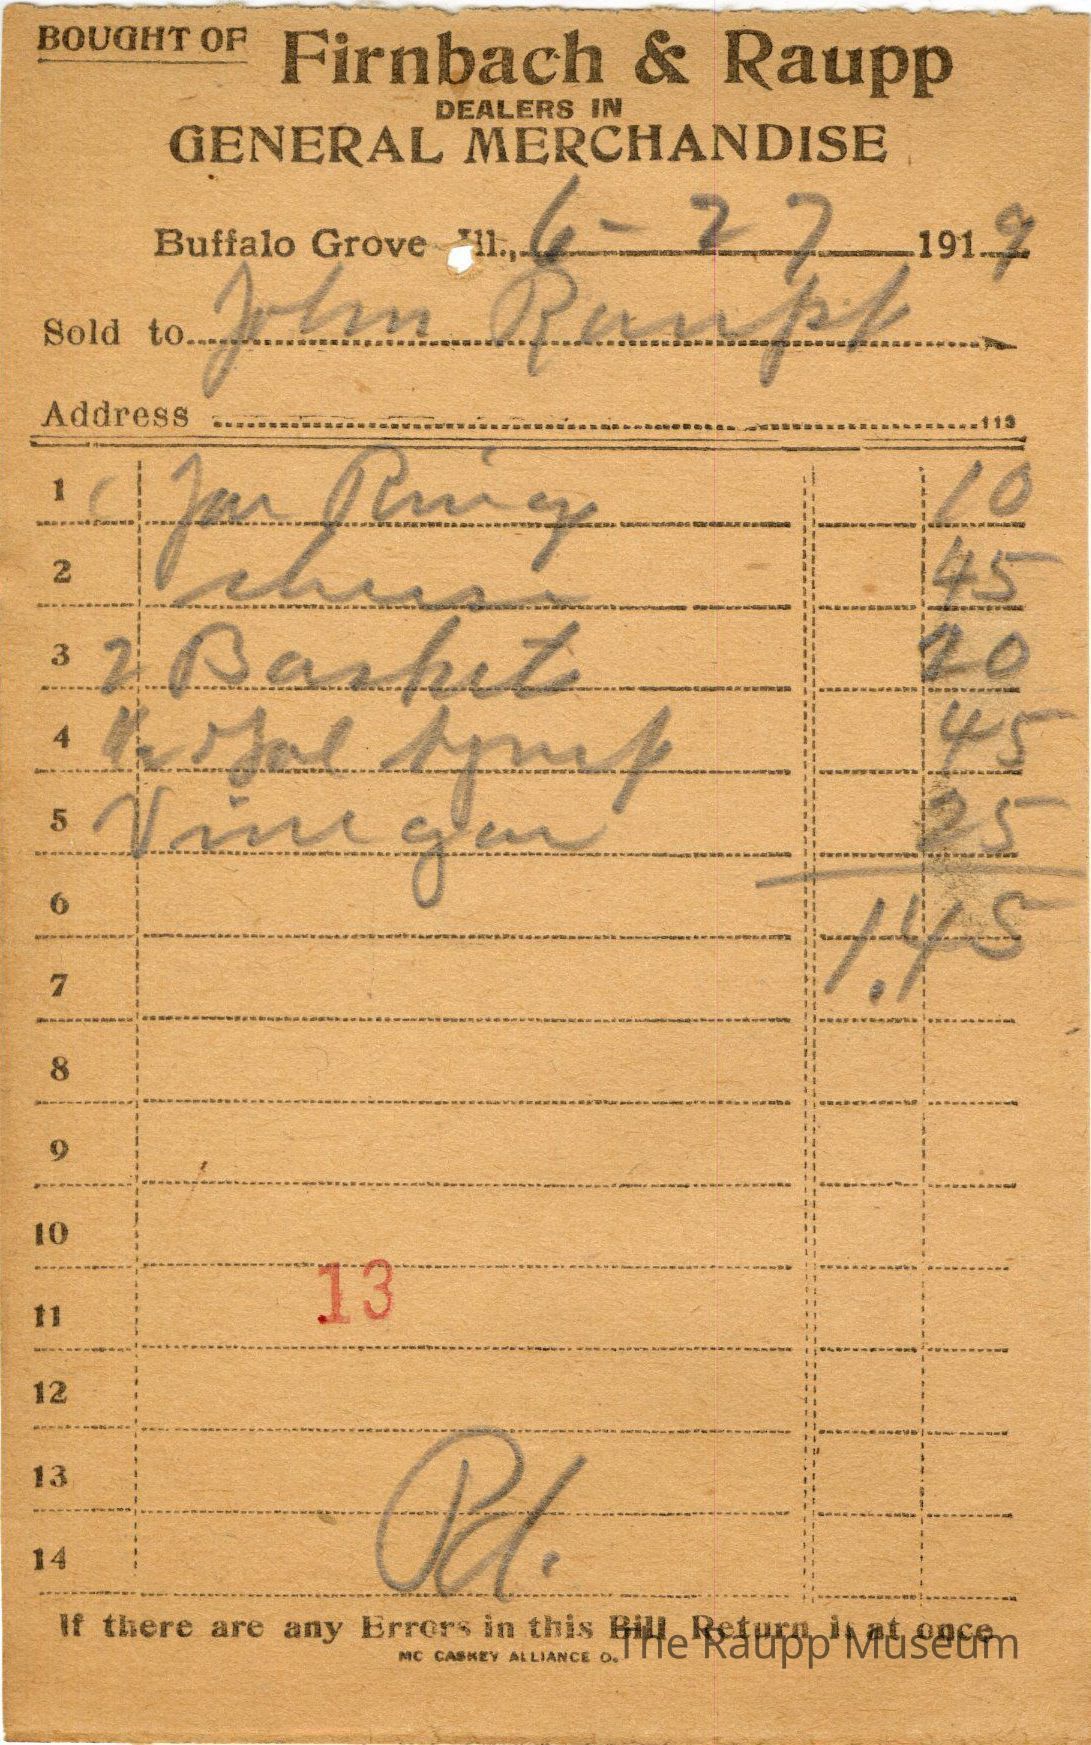 BOUGHT OF Firnbach & Raupp
DEALERS IN
GENERAL MERCHANDISE
Buffalo Grove Ill., 6-27 1919
Sold to John Raupp
Address 113
1 Jar Ring 10
2 cheese 45
3 2 Basket 20
4 1/2 Gal Syrup 45
5 Vinegar 25
6 1.45
7
8
9
10
13
11
12
13
14
Pd.
If there are any Errors in this Bill Return it at once
MC CASKEY ALLIANCE O.
The Raupp Museum